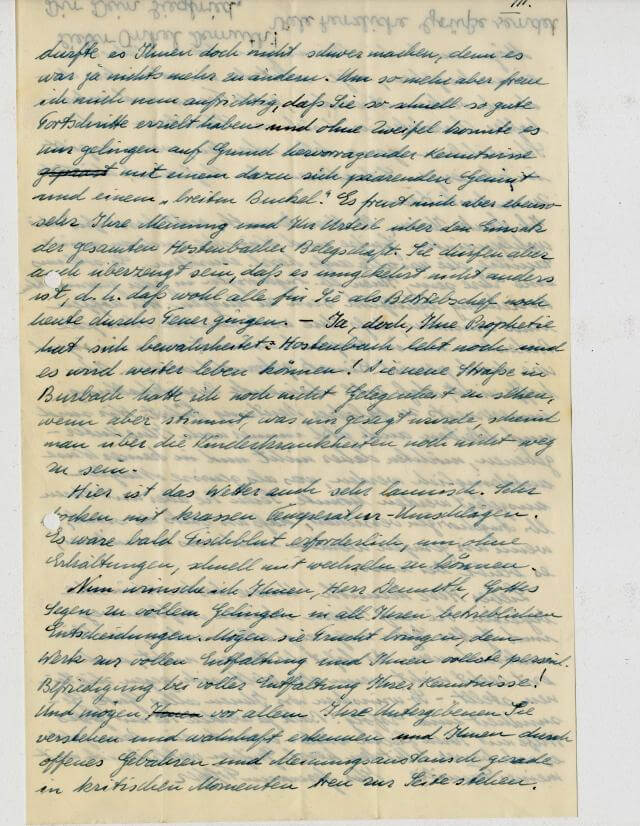 III.
Dir Dein Siegfried.
Lieber Onkel Demuth! Viele herzliche Grüße sendet
dürfte es Ihnen doch nicht schwer machen, denn es
war ja nichts mehr zu ändern. Um so mehr aber freue
ich mich nun aufrichtig, daß Sie so schnell so gute
Fortschritte erzielt haben und ohne Zweifel konnte es
nur gelingen auf Grund hervorragender Kenntnisse
gepaart mit einem dazu sich passenden Gemüt
und einem „breiten Buckel“. Es freut mich aber ebenso
sehr Ihre Meinung und Ihr Urteil über den Einsatz
der gesamten Hostenbacher Belegschaft. Sie dürfen aber
auch überzeugt sein, daß es umgekehrt nicht anders
ist, d.h. daß wohl alle für Sie als Betriebschef noch
heute durchs Feuer gingen. – Ja, doch, Ihre Prophetie
hat sich bewahrheitet: Hostenbach lebt noch und
es wird weiter leben können! Die neue Straße in
Burbach hatte ich noch nicht Gelegenheit zu sehen,
wenn aber stimmt, was mir gesagt wurde, scheint
man über die Kinderkrankheiten noch nicht weg
zu sein.
Hier ist das Wetter auch sehr launisch. Sehr
trocken mit krassen Temperatur-Umschlägen.
Es wäre bald Fischblut erforderlich, um ohne
Erkältungen, schnell mit wechseln zu können.
Nun wünsche ich Ihnen, Herr Demuth, Gottes
Segen zu vollem Gelingen in all Ihren betrieblichen
Entscheidungen. Mögen sie Frucht bringen, dem
Werk zur vollen Entfaltung und Ihnen vollste persönl.
Befriedigung bei voller Entfaltung Ihrer Kenntnisse!
Und mögen Ihnen vor allem Ihre Untergebenen Sie
verstehen und wahrhaft erkennen und Ihnen durch
offenes Gebahren und Meinungsaustausch gerade
in kritischen Momenten treu zur Seite stehen.